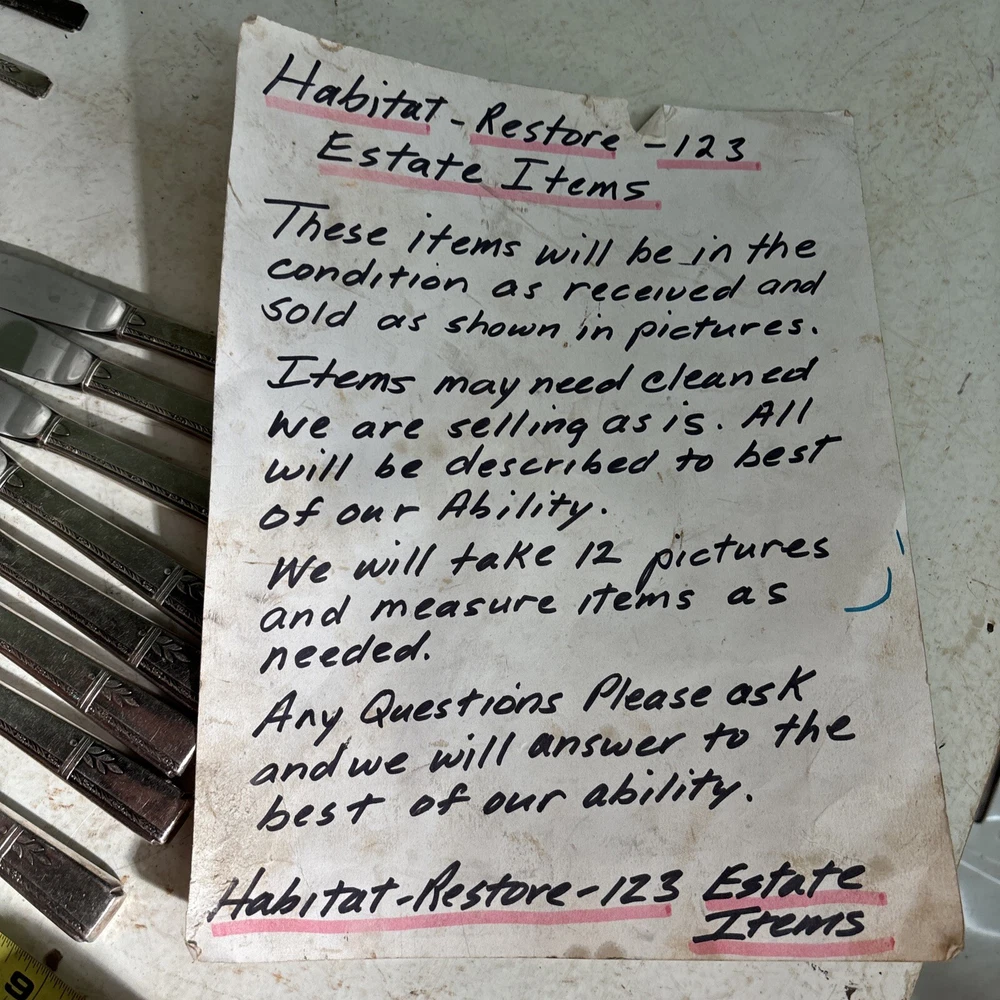 Habitat-Restore-123
Estate Items
These items will be in the
condition as received and
sold as shown in pictures.
Items may need cleaned
we are selling as is. All
will be described to best
of our Ability.
We will take 12 pictures
and measure items as
needed.
Any Questions Please ask
and we will answer to the
best of our ability.
Habitat-Restore-123 Estate
Items
9